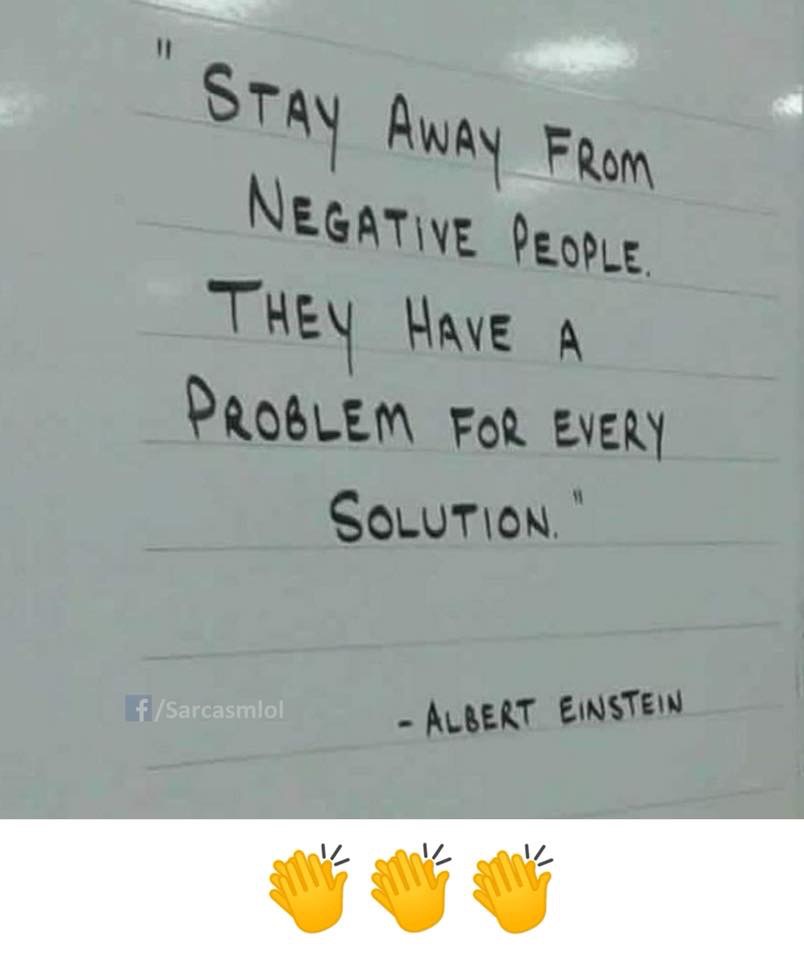 " STAY AWAY FROM
NEGATIVE PEOPLE.
THEY HAVE A
PROBLEM FOR EVERY
SOLUTION. "
f/Sarcasmlol
- ALBERT EINSTEIN